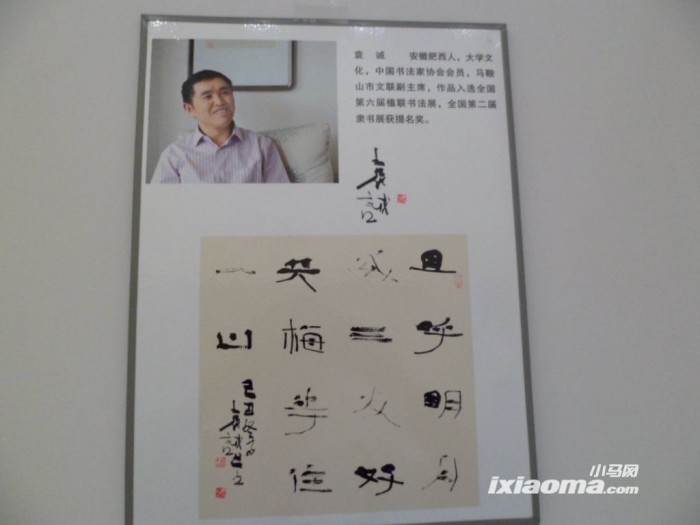 袁 诚 安徽肥西人，大学文
化，中国书法家协会会员，马鞍
山市文联副主席，作品入选全国
第六届楹联书法展，全国第二届
隶书展获提名奖。
袁诚
且呼明月
成三友好
共梅花住
一山
己丑
袁诚
小马网
ixiaoma.com